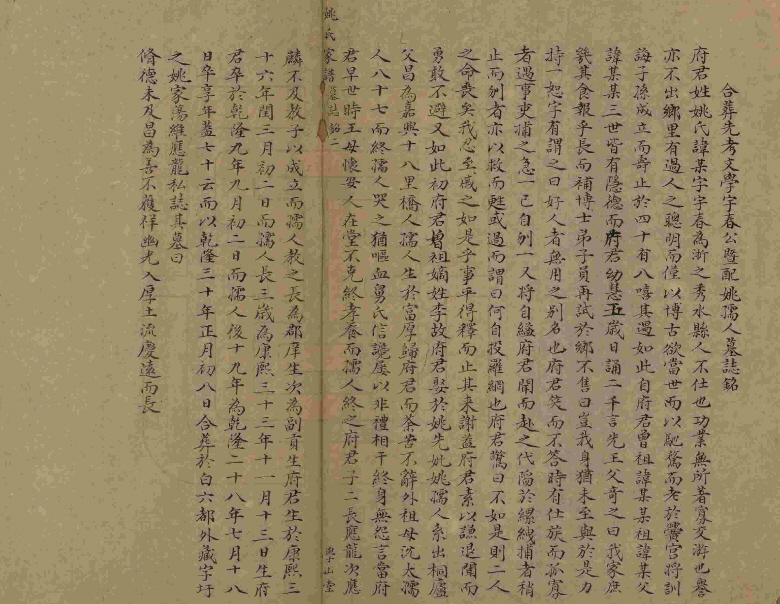 合葬先考文學字春公暨配姚孺人墓誌銘
府君姓姚氏諱某字字春為浙之秀水縣人不仕也功業無所著寡交游也譽
亦不出鄉里有過人之聰明而僅以博古欲當世而以馳騖而老於黌宮將訓
誨子孫成立而壽止於四十有八嘻其遇如此自府君曾祖諱某某祖諱某父
諱某某三世皆有隱德而府君幼慧五歲日誦二千言先王父奇之曰我家庶
幾其食報乎長而補博士弟子員再試於鄉不售曰豈我身猶未至與於是力
持一恕字有謂之曰好人者無用之别名也府君笑而不答時有仕族而孤寡
者遇事吏捕之急一已自刎一又將自縊府君聞而赴之代陷於縲絏捕者稍
止而刎者亦以救而甦或過而謂曰何自投羅網也府君驚曰不如是則二人
之命喪矣我忍坐威之如是乎事平得釋而止其來謝蓋府君素以謙退聞而
勇敢不避又如此初府君曾祖嫡姓李故府君娶於姚先妣姚孺人系出桐廬
父昌為嘉興十八里橋人孺人生於富厚歸府君而荼苦不辭外祖母沈太孺
人八十七而終孺人哭之猶嘔血舅氏信讒屢以非禮相干終身無怨言當府
君早世時王母懷安人在堂不克終孝養而孺人終之府君子二長應龍次應
姚氏家譜 墓誌銘 二
惠山堂
麟不及教子以成立而孺人教之長為郡庠生次為副貢生府君生於康熙三
十六年閏三月初二日而孺人長三歲為康熙三十三年十一月十三日生府
君卒於乾隆九年九月初二日而孺人後十九年為乾隆二十八年七月十八
日卒享年蓋七十云而以乾隆三十年正月初八日合葬於白六都外藏字圩
之姚家蕩維應龍私誌其墓曰
脩德未及昌為善不獲祥幽光入厚土流慶遠而長